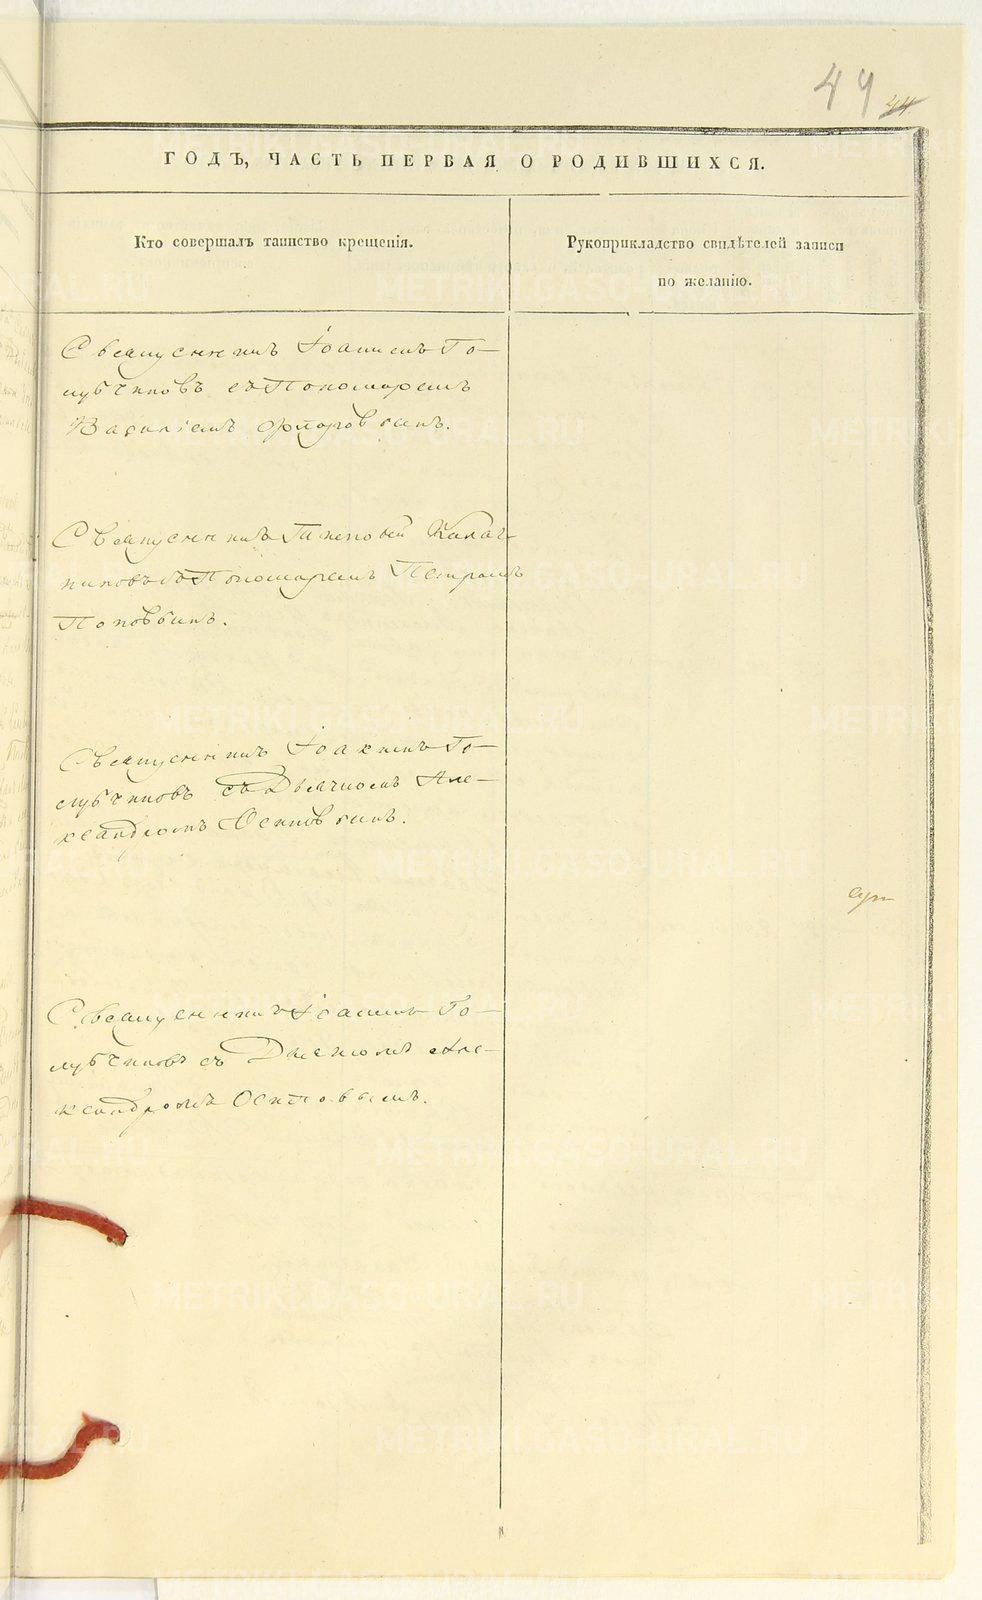 44 44
ГОДЪ, ЧАСТЬ ПЕРВАЯ О РОДИВШИХСЯ.
Кто совершалъ таинство крещенія.
Рукоприкладство свидѣтелей записи
по желанію.
Священникъ Іоаннъ Го-
лубчиковъ съ Пономаремъ
Василіемъ
Священникъ Калач-
никовъ съ Пономаремъ Петромъ
Поповымъ.
Священникъ Іоаннъ Го-
лубчиковъ съ Дьячкомъ Але-
ксандромъ Осиповымъ.
Священникъ Іоаннъ Го-
лубчиковъ съ Але-
ксандромъ Осиповымъ.
METRIKI.GASO-URAL.RU